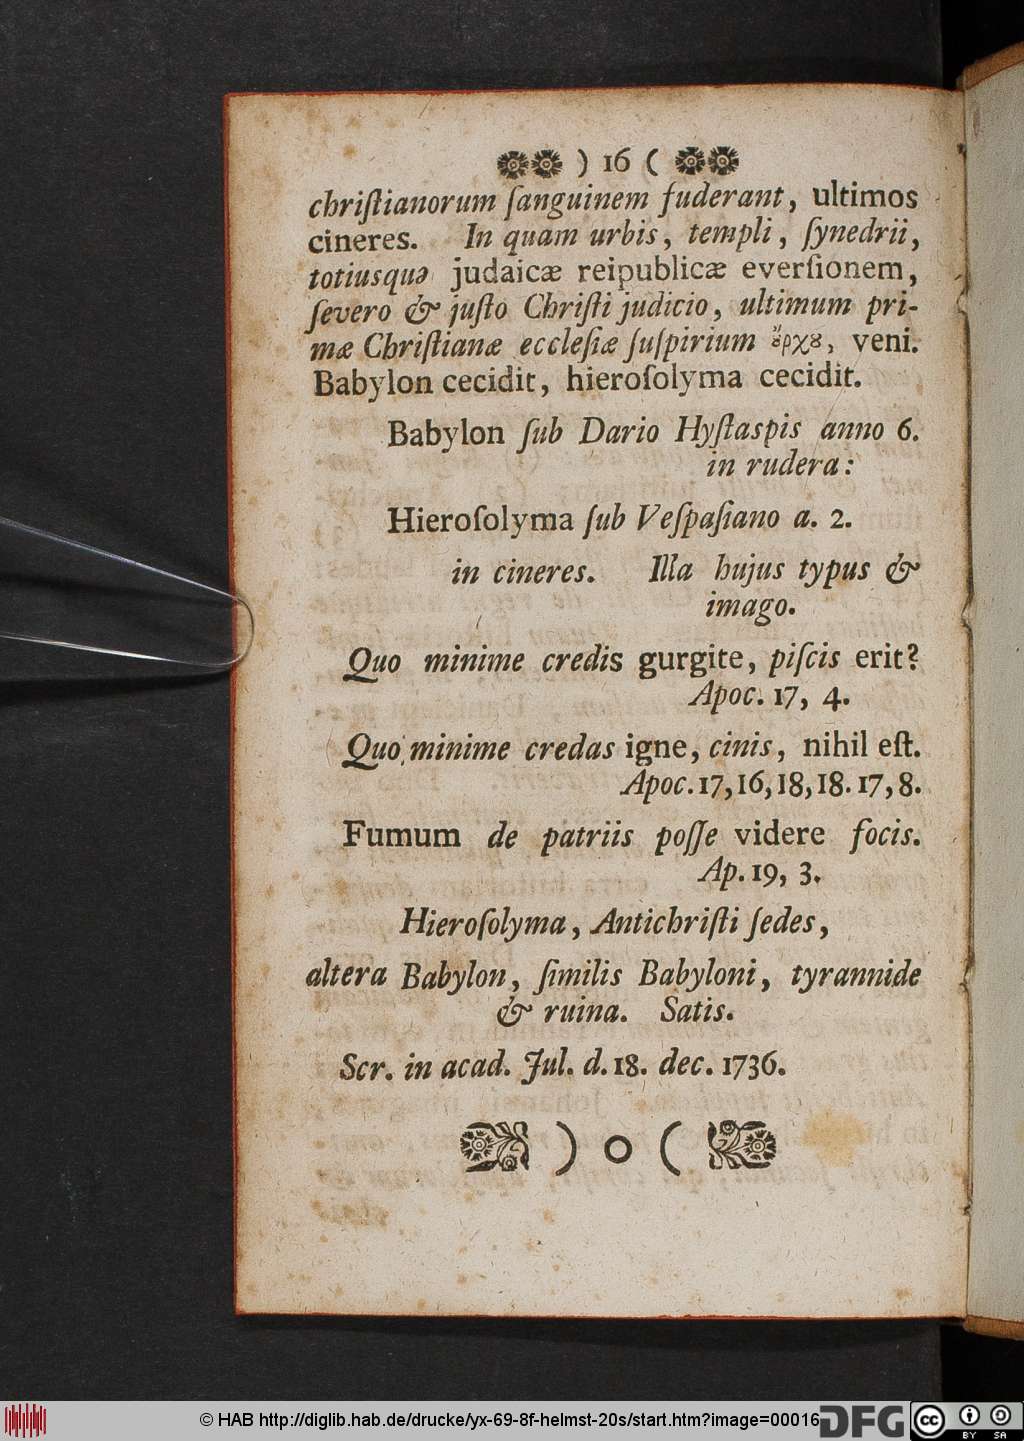 ) 16 (
chriſtianorum ſanguinem fuderant, ultimos
cineres. In quam urbis, templi, ſynedrii,
totiusque judaicæ reipublicæ everſionem,
ſevero & juſto Chriſti judicio, ultimum pri-
mæ Chriſtianæ eccleſiæ ſuſpirium ἔρχȣ, veni.
Babylon cecidit, hieroſolyma cecidit.
Babylon ſub Dario Hyſtaspis anno 6.
in rudera:
Hieroſolyma ſub Veſpaſiano a. 2.
in cineres. Illa hujus typus &
imago.
Quo minime credis gurgite, piſcis erit?
Apoc. 17, 4.
Quo minime credas igne, cinis, nihil eſt.
Apoc. 17, 16, 18, 18. 17, 8.
Fumum de patriis poſſe videre focis.
Ap. 19, 3.
Hieroſolyma, Antichriſti ſedes,
altera Babylon, ſimilis Babyloni, tyrannide
& ruina. Satis.
Scr. in acad. Jul. d. 18. dec. 1736.
) o (
© HAB http://diglib.hab.de/drucke/yx-69-8f-helmst-20s/start.htm?image=00016
DFG
cc BY SA